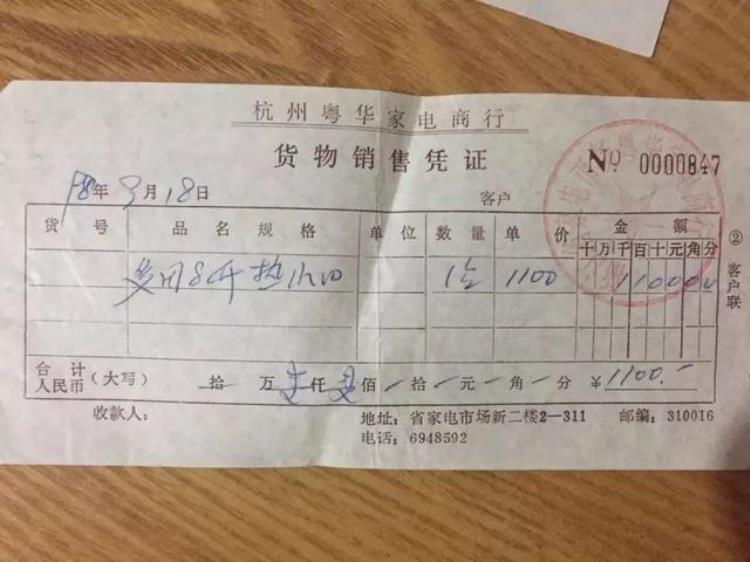 杭州粤华家电商行
货物销售凭证
№ 0000847
98年9月18日
客户
货号 品名规格 单位 数量 单价 金额
十万千百十元角分
8升热 1台 1100 110000
合计
人民币(大写) 拾 万壹仟壹佰一拾一元一角一分 ¥1100.-
② 客户联
收款人:
地址:省家电市场新二楼2—311 邮编:310016
电话:6948592